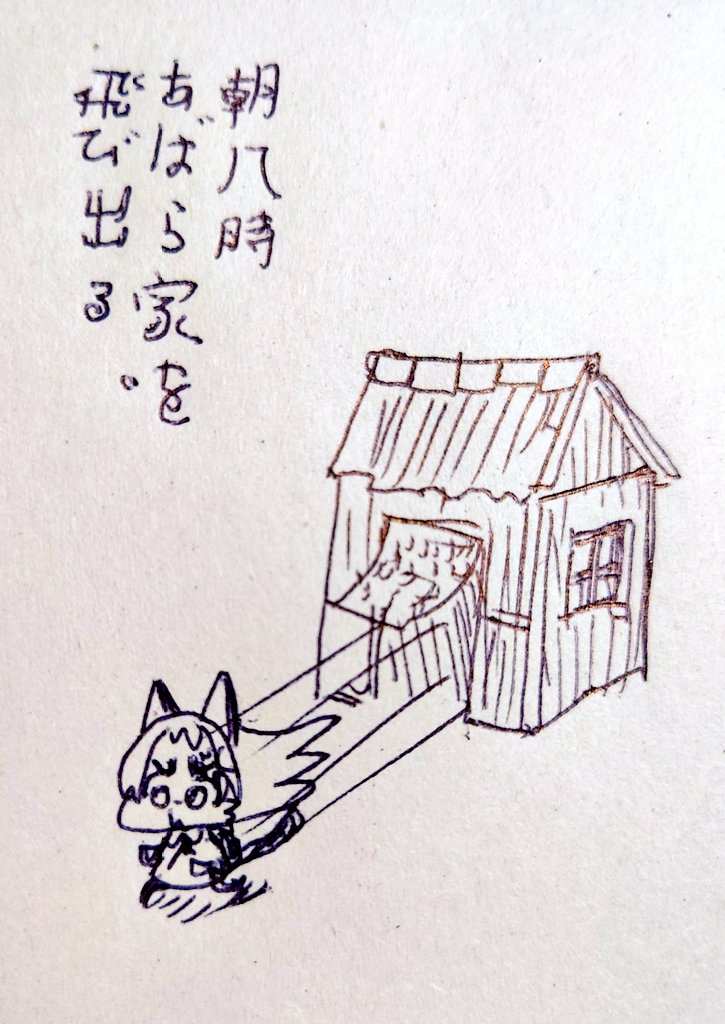 朝八時
あばら家を
飛び出る。